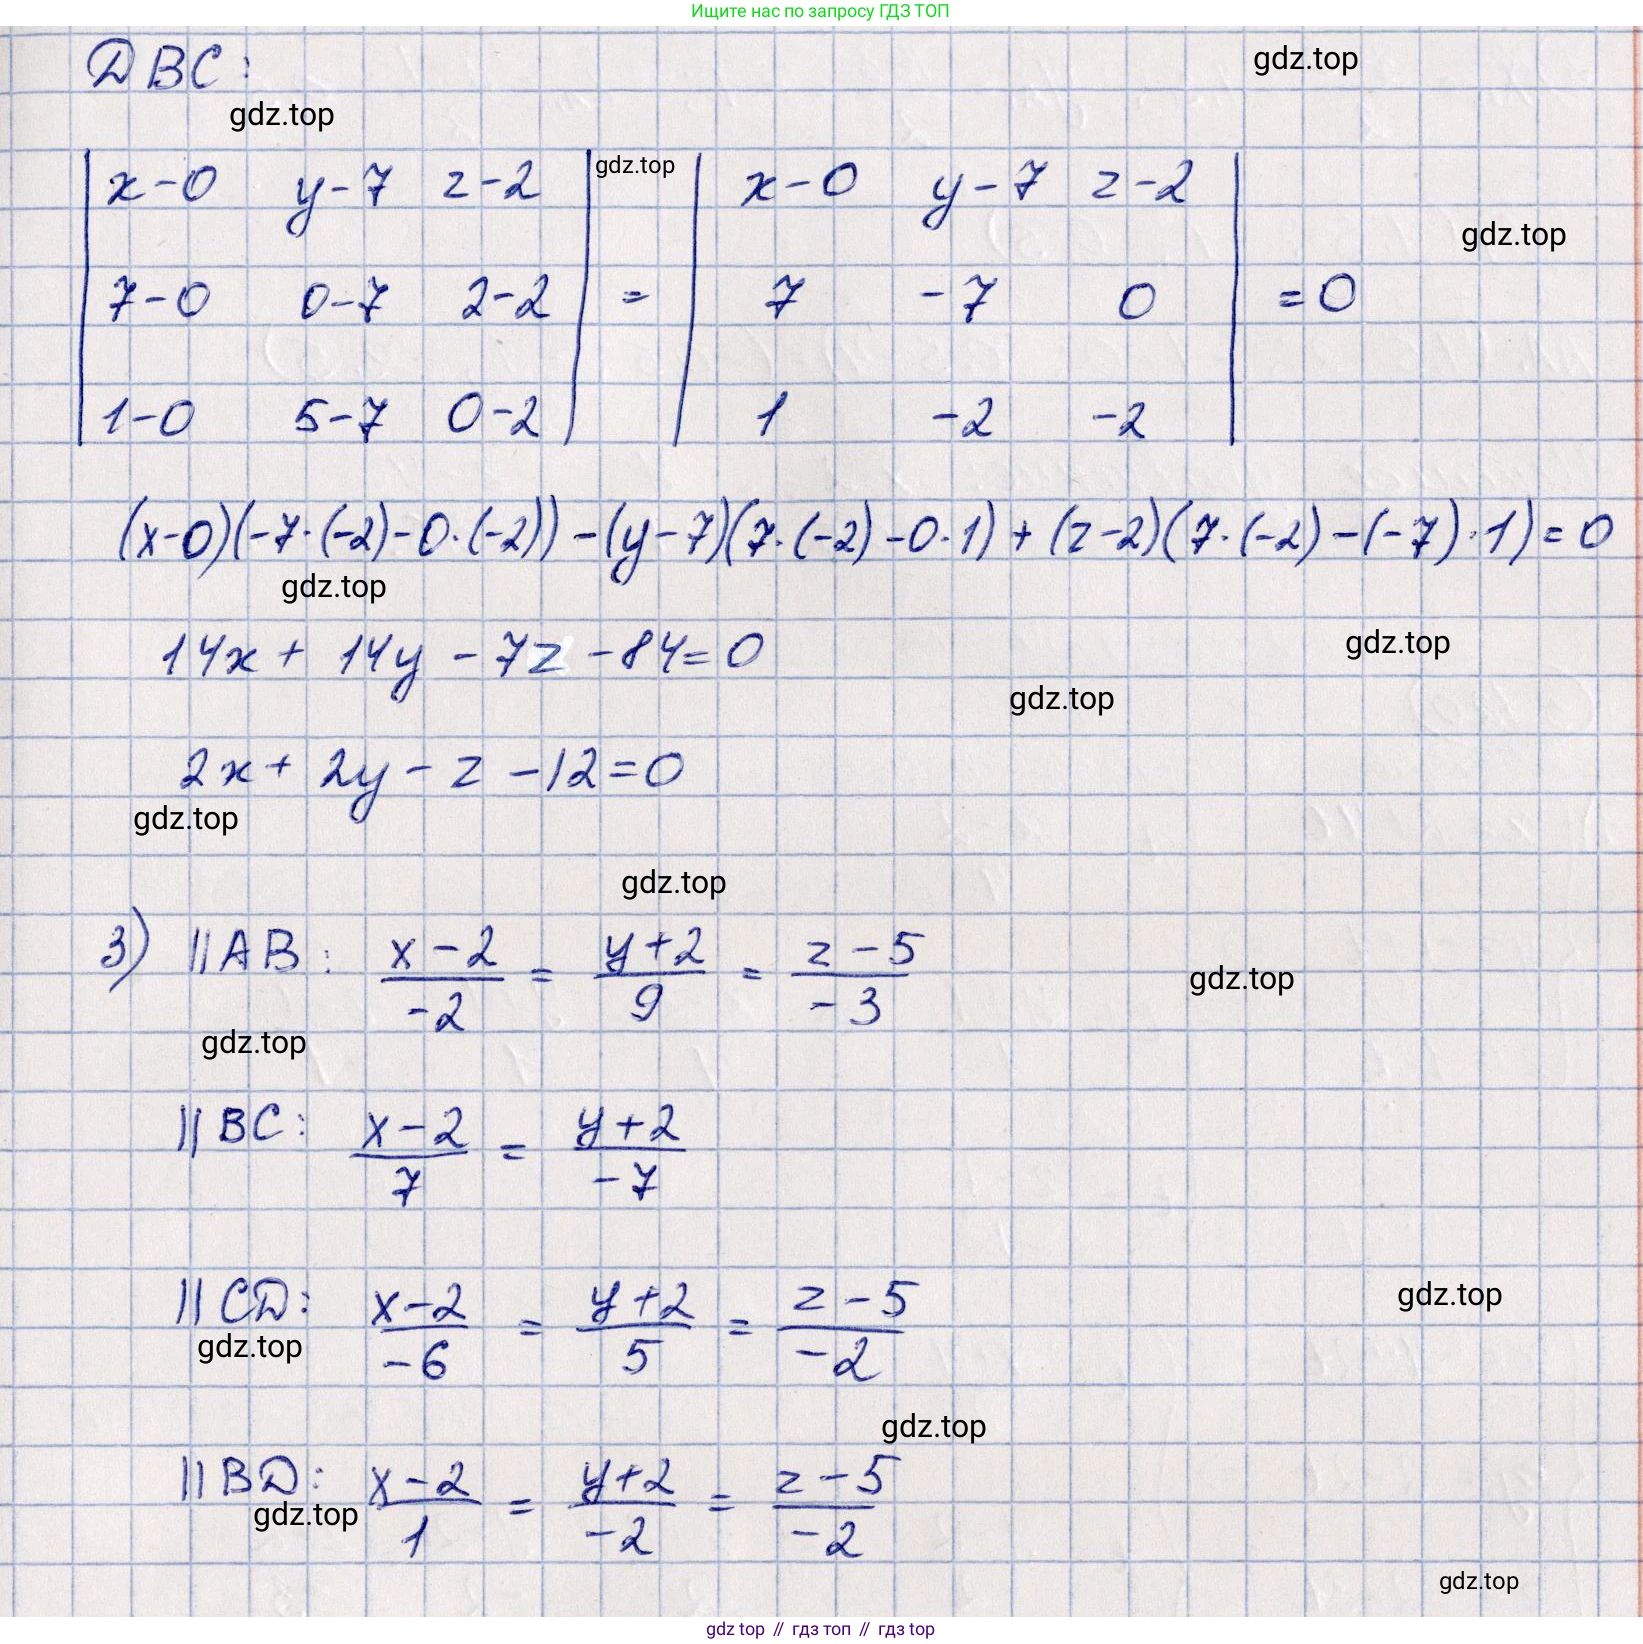 Ищите нас по запросу ГДЗ ТОП
DBC:
gdz.top
gdz.top
| x-0 y-7 z-2 | gdz.top | x-0 y-7 z-2 |
gdz.top
| 7-0 0-7 2-2 | = | 7 -7 0 | = 0
| 1-0 5-7 0-2 | | 1 -2 -2 |
(x-0)(-7·(-2)-0·(-2))-(y-7)(7·(-2)-0·1)+(z-2)(7·(-2)-(-7)·1)=0
gdz.top
14x+14y-7z-84=0
gdz.top
gdz.top
2x+2y-z-12=0
gdz.top
gdz.top
3) ||AB: (x-2)/(-2) = (y+2)/9 = (z-5)/(-3)
gdz.top
gdz.top
||BC: (x-2)/7 = (y+2)/(-7)
||CD: (x-2)/(-6) = (y+2)/5 = (z-5)/(-2)
gdz.top
gdz.top
gdz.top
||BD: (x-2)/1 = (y+2)/(-2) = (z-5)/(-2)
gdz.top
gdz.top
gdz top // гдз топ // гдз top